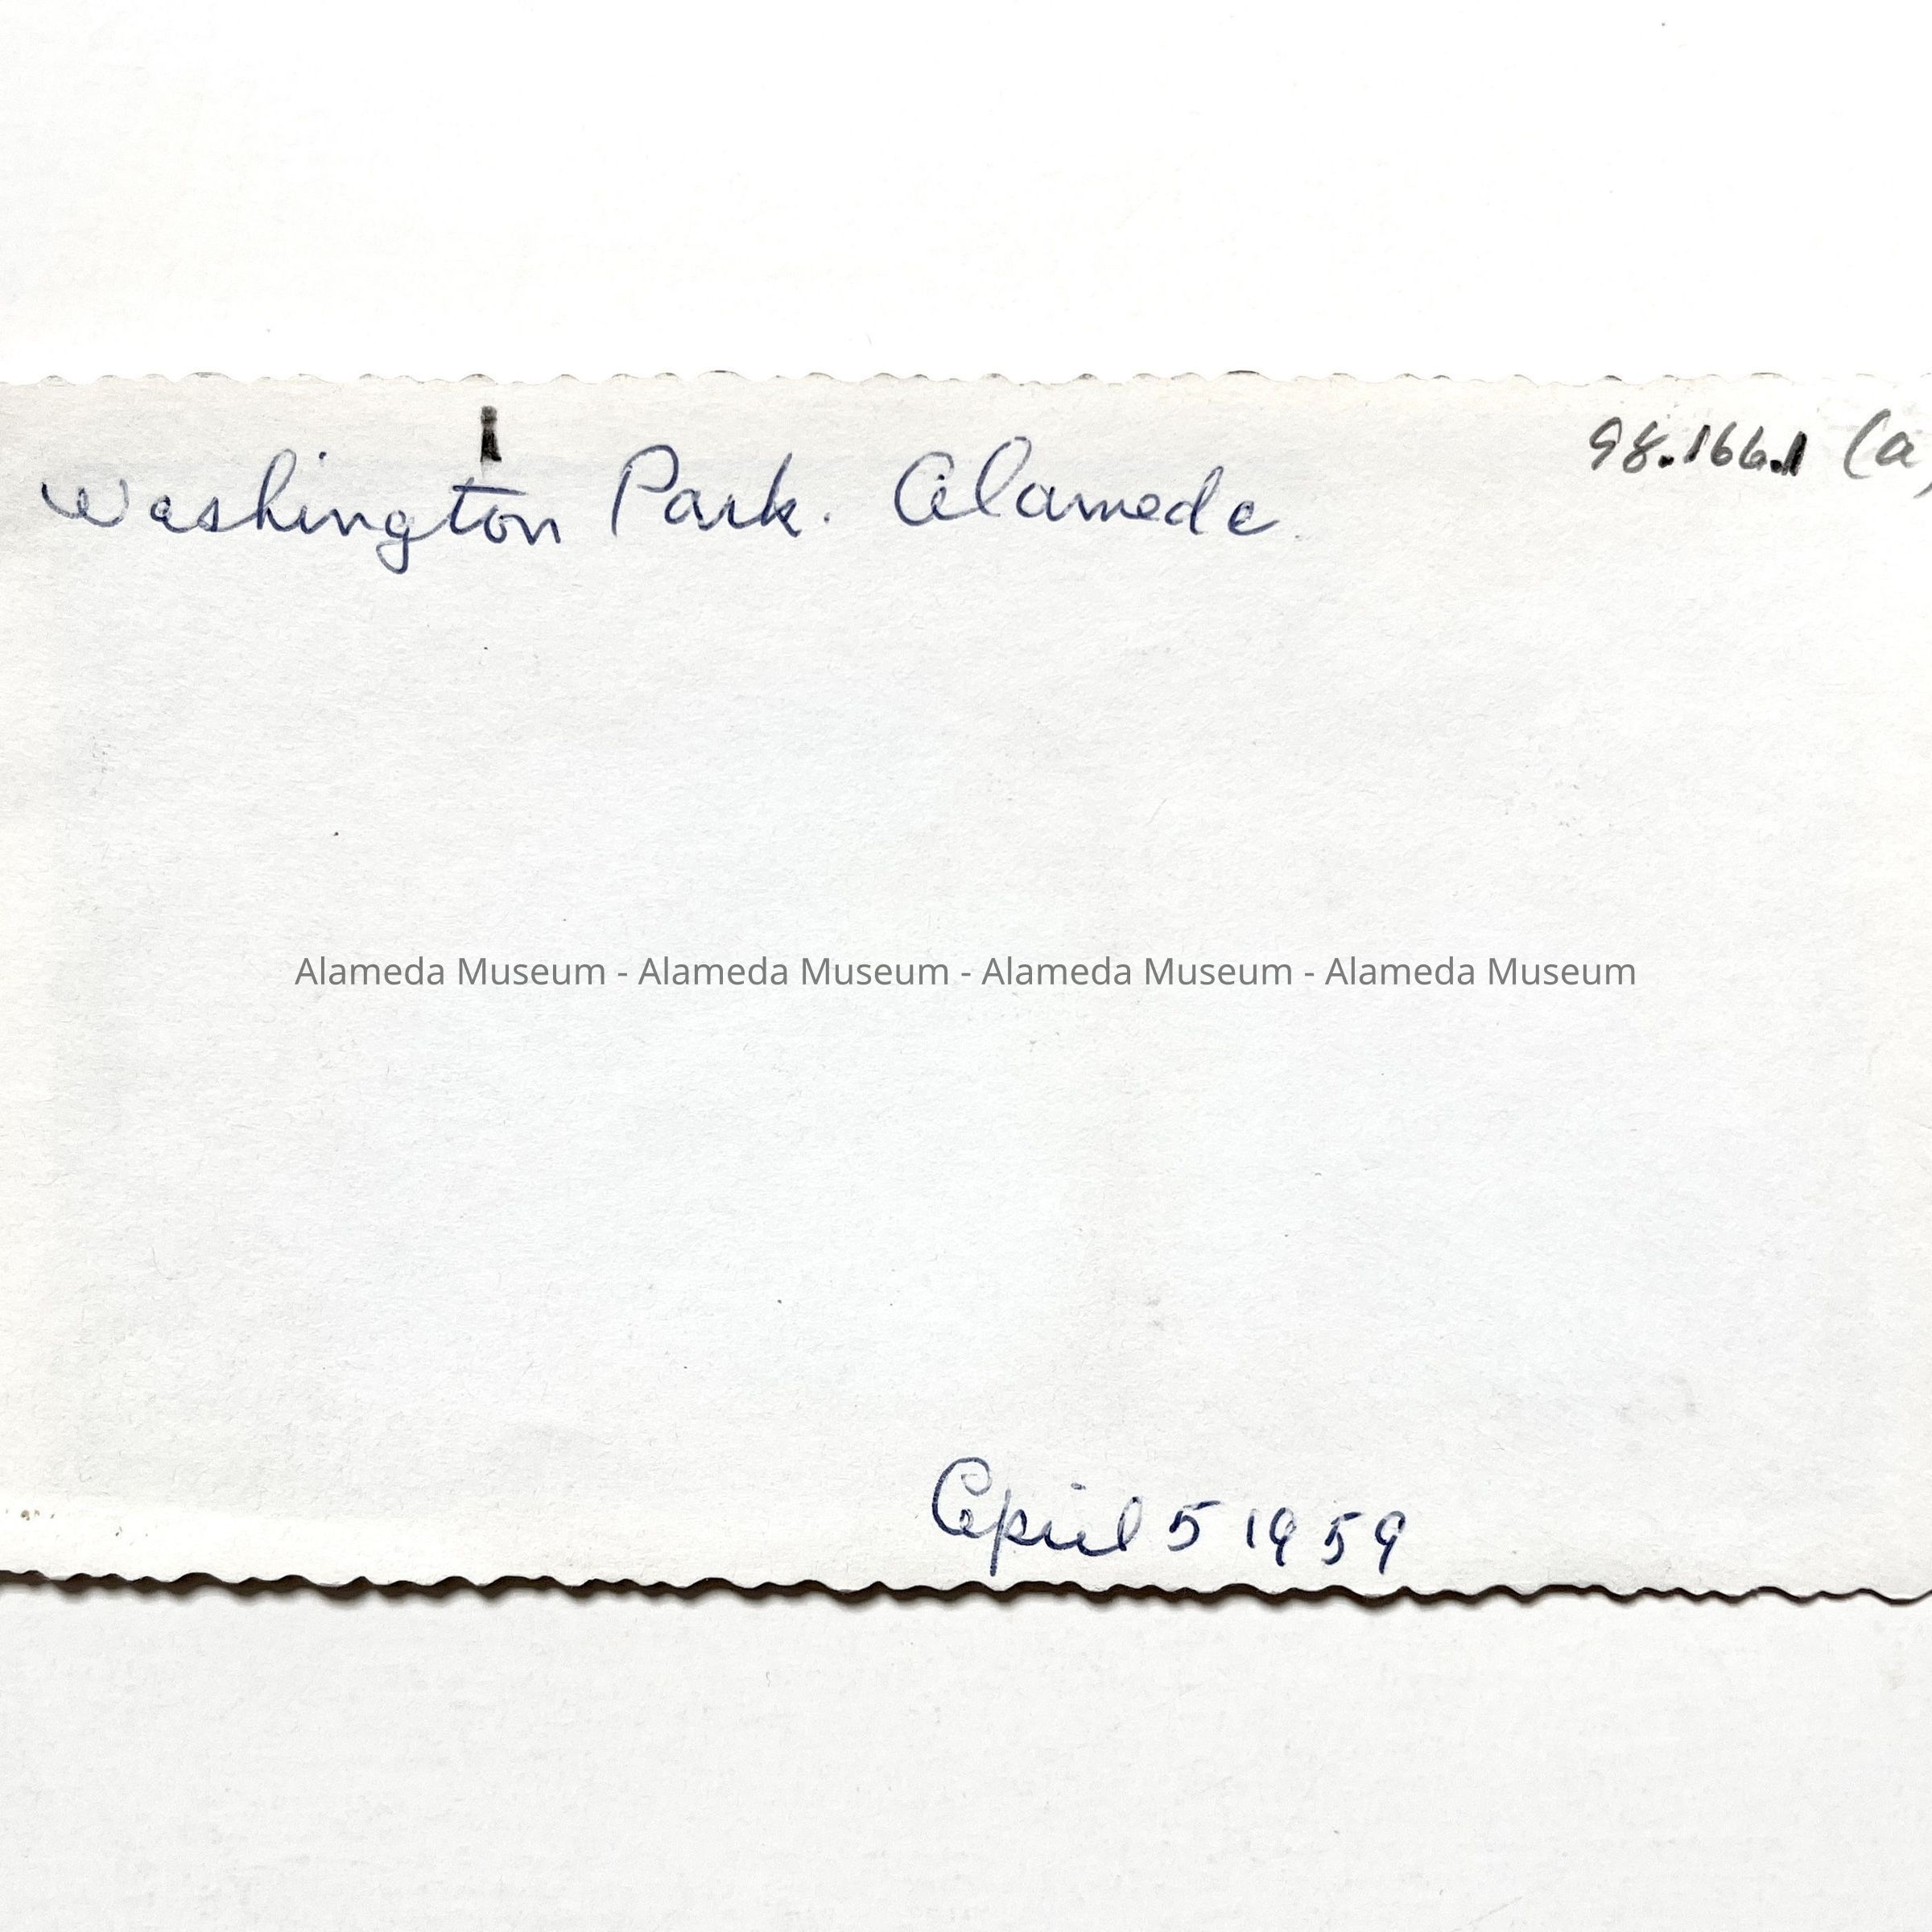 98.166.1 (a)
Washington Park. Alameda
Alameda Museum - Alameda Museum - Alameda Museum - Alameda Museum
April 5 1959